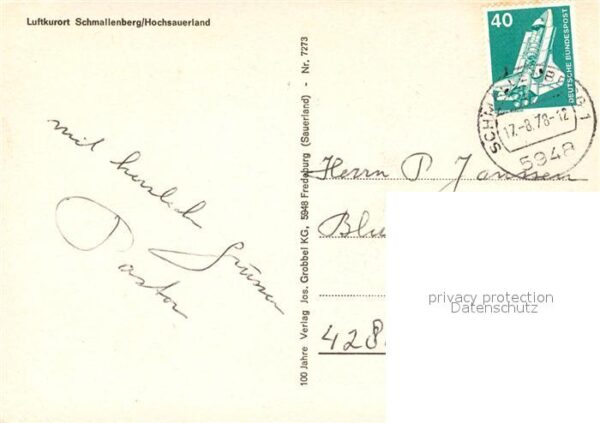 Luftkurort Schmallenberg/Hochsauerland
mit herzlich
Grüssen
Pastor
100 Jahre Verlag Jos. Grobbel KG, 5948 Fredeburg (Sauerland) - Nr. 7273
40
DEUTSCHE BUNDESPOST
17.-8.78-12
5948
Herrn P. Janssen
428
privacy protection
Datenschutz